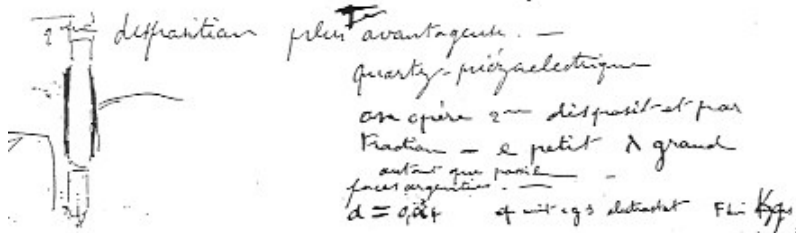 2me disposition plus avantageuse. —
quartz-piézoelectrique
on opère 2me disposit et par
traction — e petit λ grand
autant que possib
faces argentées. —
d = 0,064 q unit cgs electrostat F en Kgs